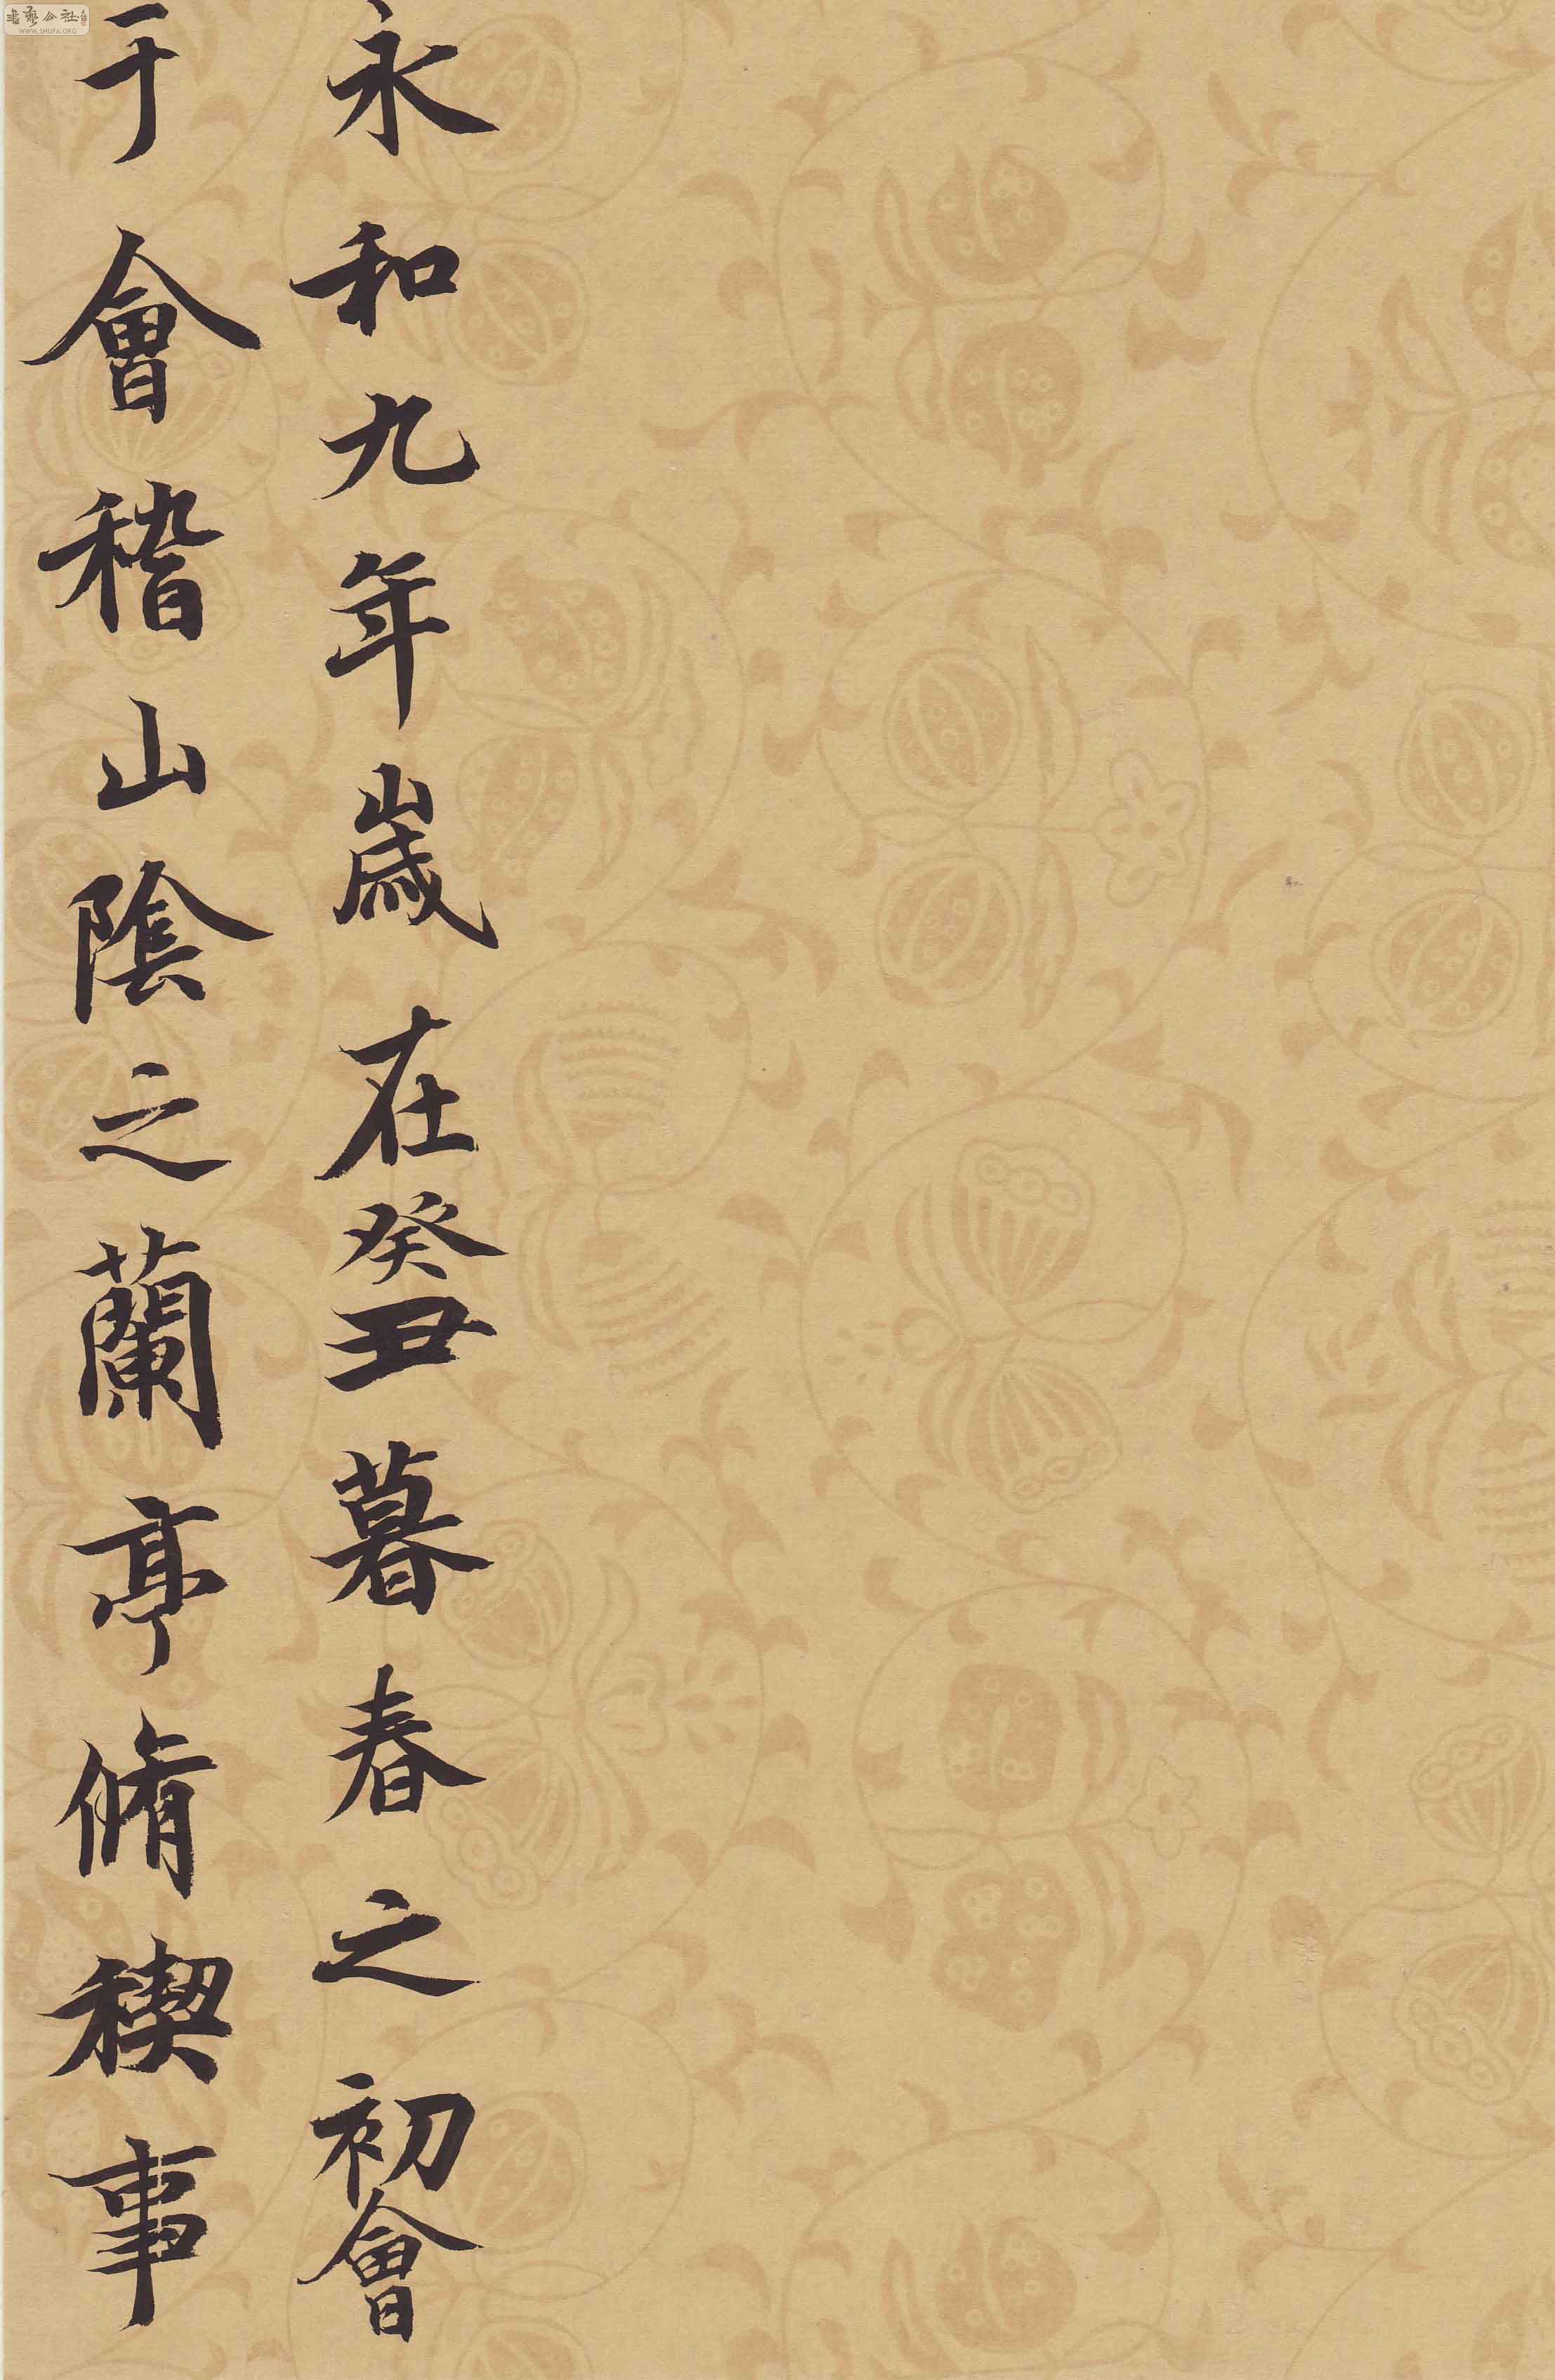 永和九年歲在癸丑暮春之初會
于會稽山陰之蘭亭脩禊事
書藝公社
WWW.SHUFA.ORG